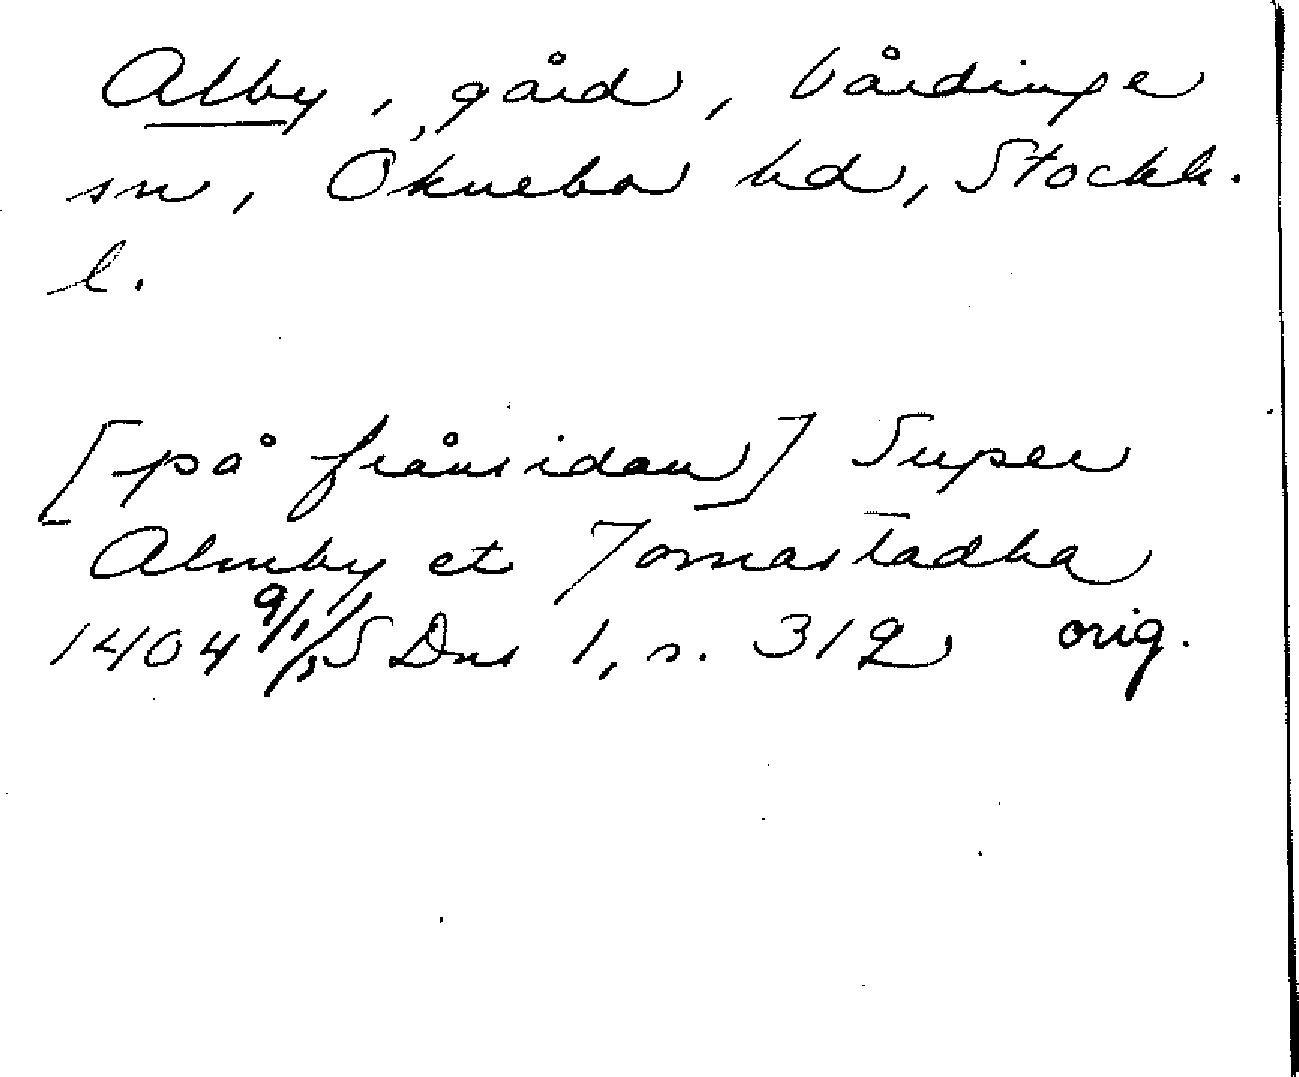 Alby, gård, Vårdinge
sn, Öknebo hd, Stockh.
l.
[på frånsidan] Super
Almby et Tomastadha
1404 9/11 SDns 1, s. 312 orig.